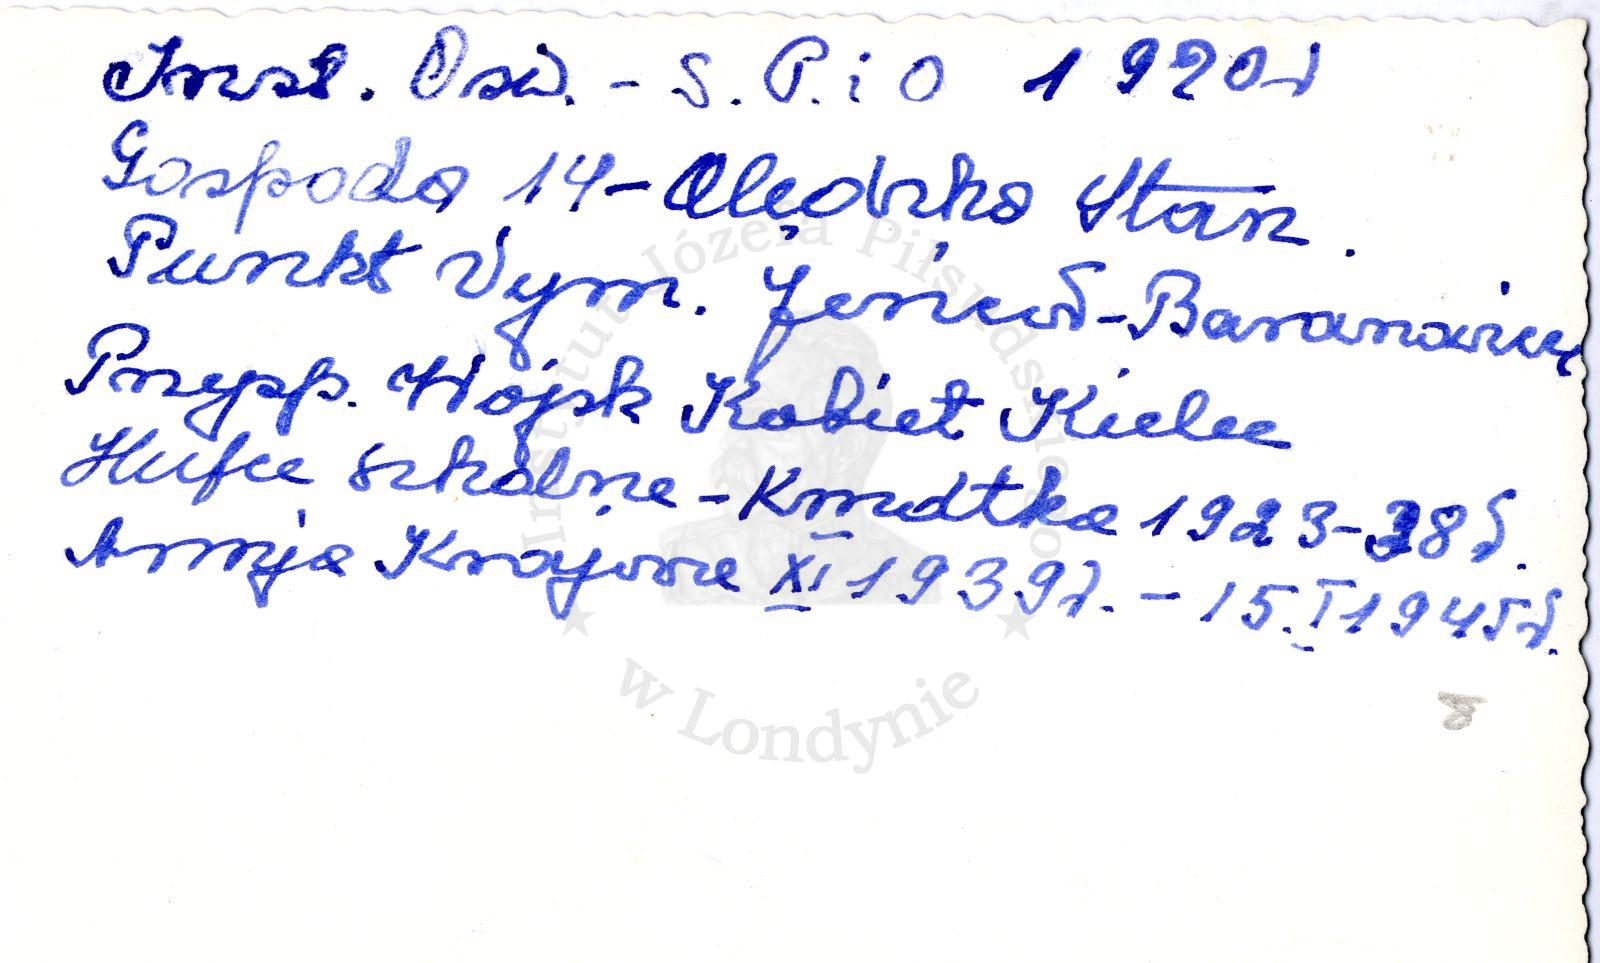 Inst. Ośw. - S. P. i O 1920r
Gospoda 14 - Olędzka Stan.
Punkt Wym. Jeńców - Baranowicze
Przysp. Wojsk Kobiet Kielce
Hufce szkolne - Kmudtka 1923-38r.
Armja Krajowa XI 1939r. - 15.I 1945r.
Instytut Józefa Piłsudskiego
w Londynie
8